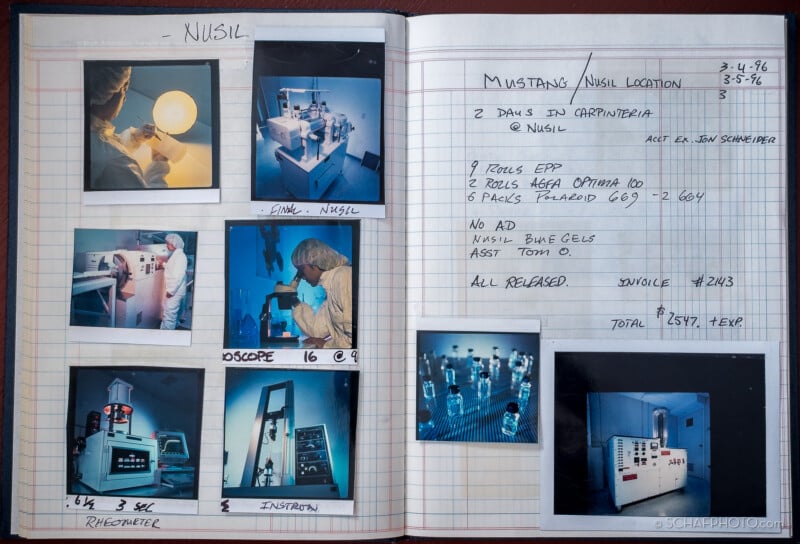 - NUSIL
. FINAL. NUSIL
OSCOPE 16 @ 9
6 1/2 3 SEC
RHEOMETER
INSTRON
MUSTANG / NUSIL LOCATION
3-4-96
3-5-96
3
2 DAYS IN CARPINTERIA
@ NUSIL
ACCT EX. JON SCHNEIDER
9 ROLLS EPP
2 ROLLS AGFA OPTIMA 100
6 PACKS POLAROID 669 - 2 664
NO AD
NUSIL BLUE GELS
ASST TOM O.
ALL RELEASED. INVOICE #2143
TOTAL $2547. + EXP.
© SCHAFPHOTO.com